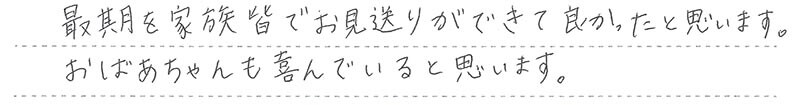 最期を家族皆でお見送りができて良かったと思います。
おばあちゃんも喜んでいると思います。